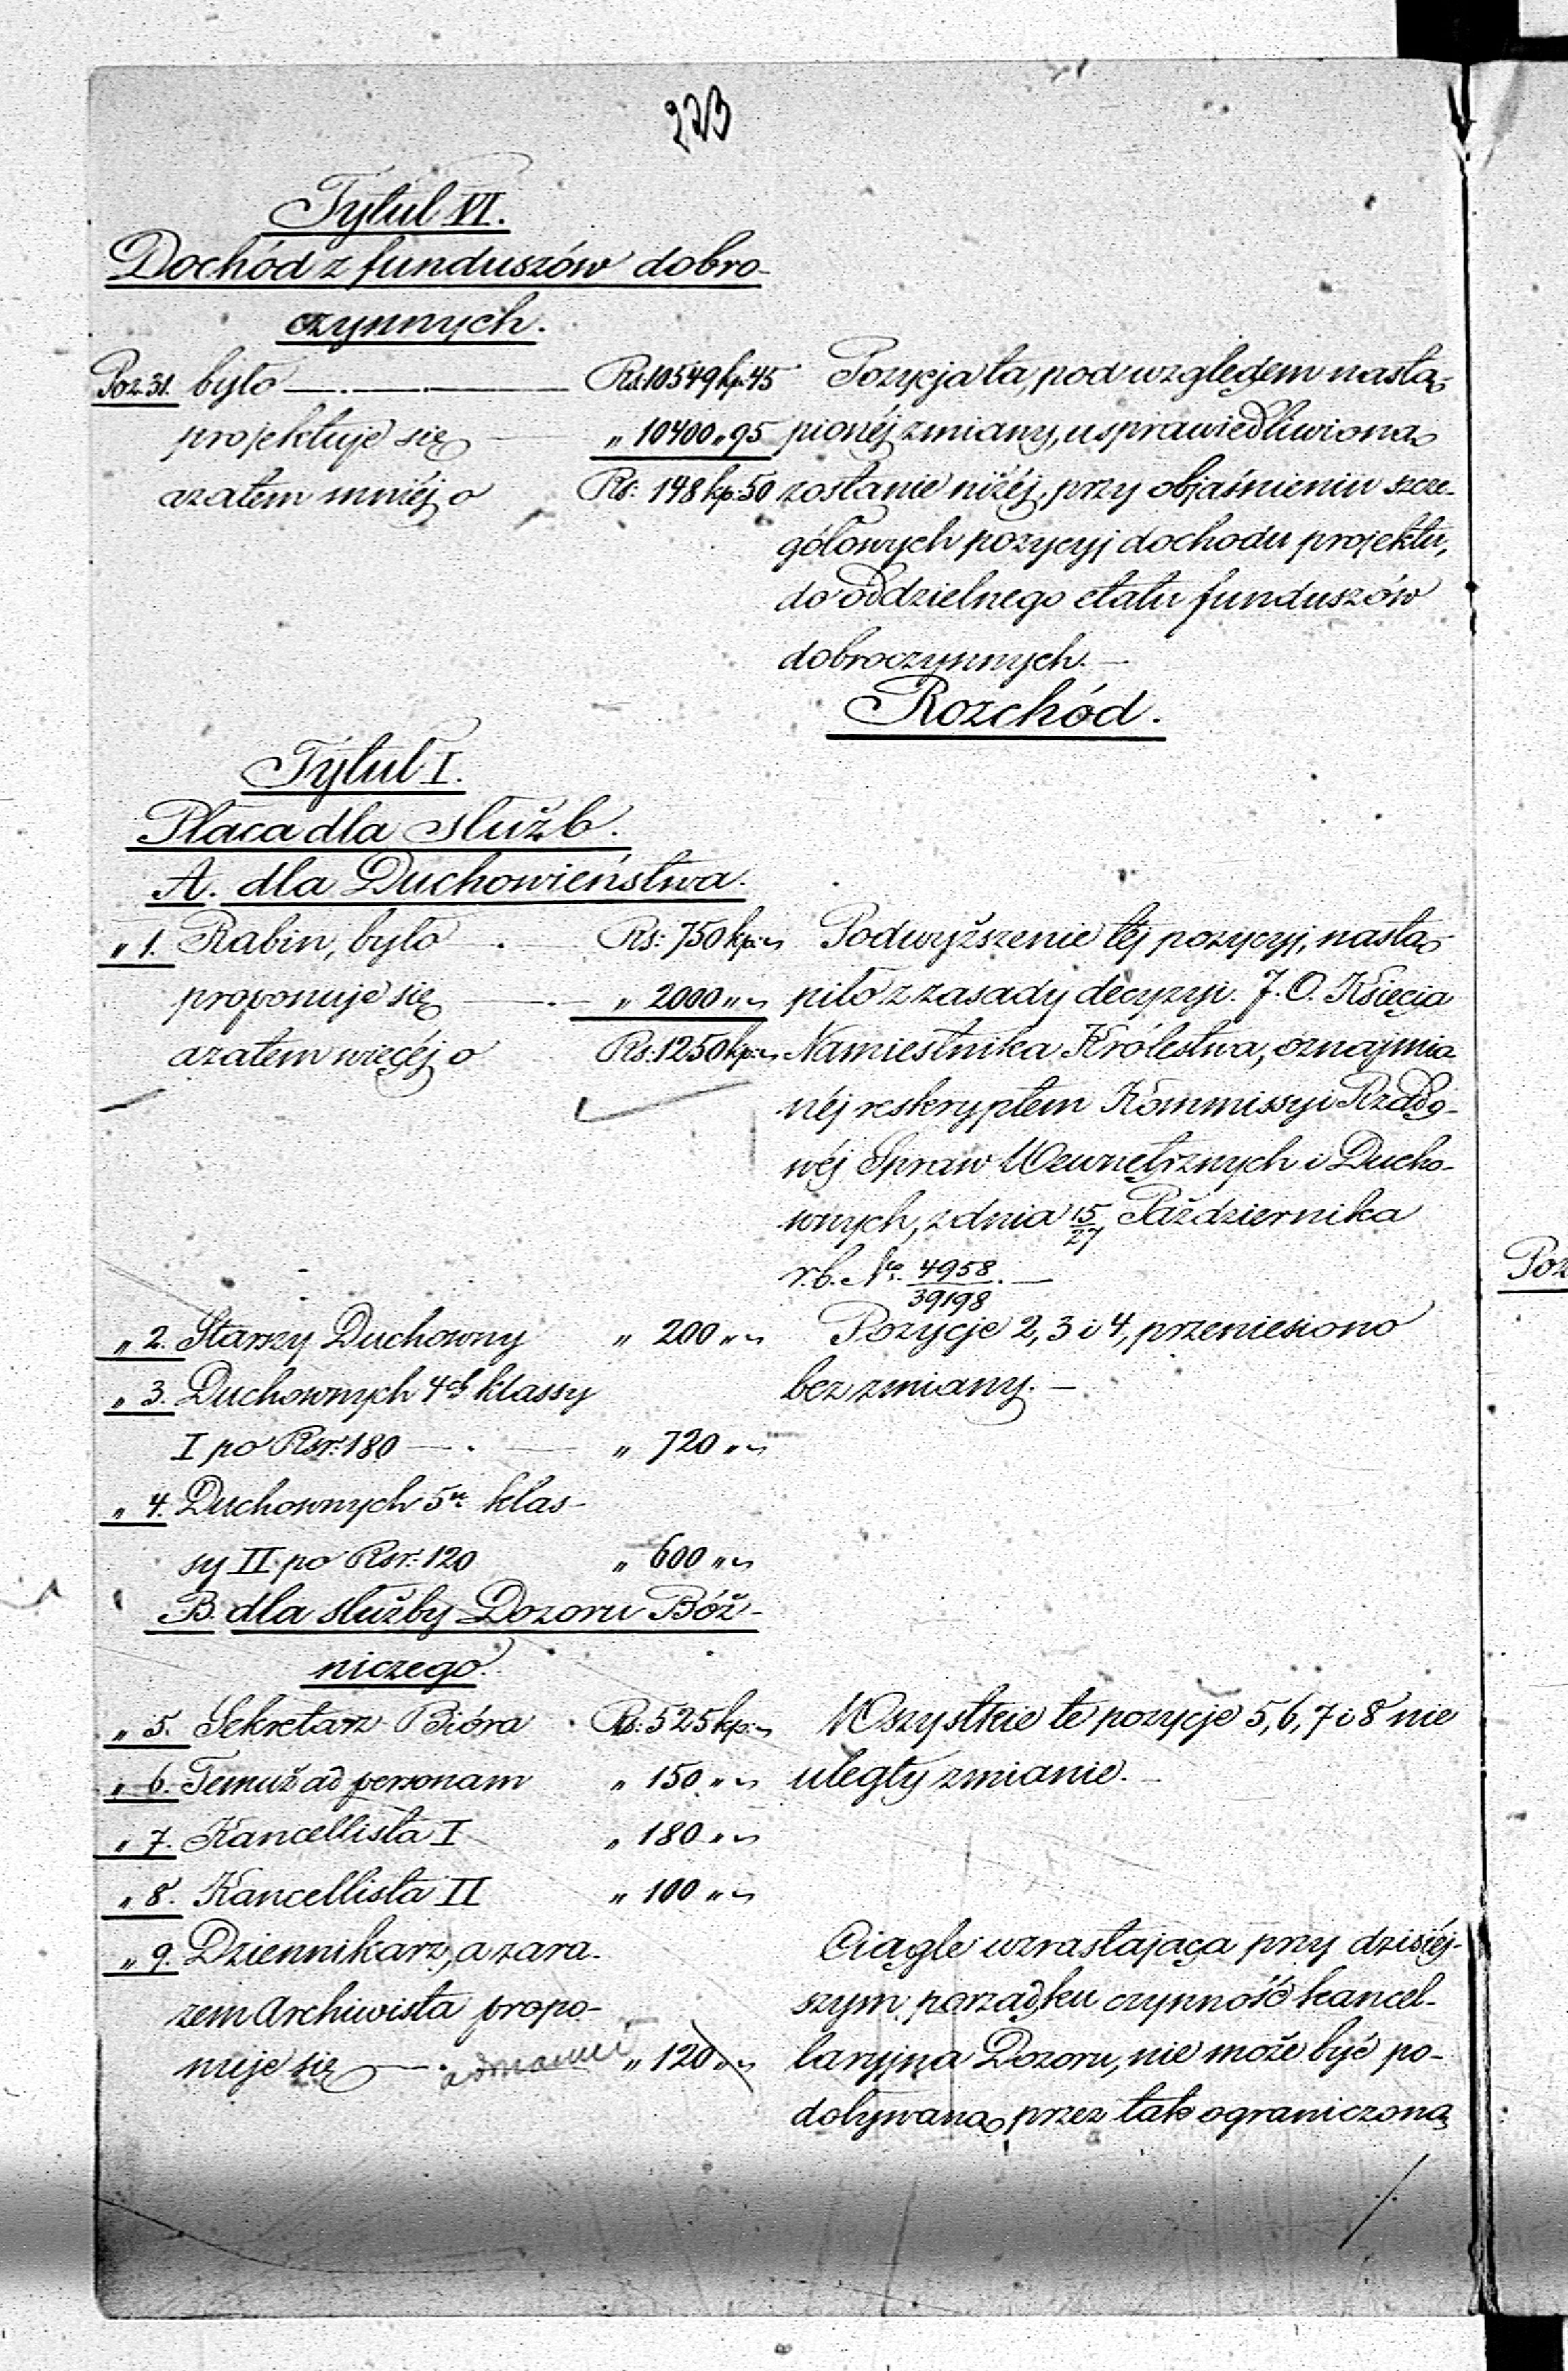 223
Tytuł VI.
Dochód z funduszów dobro-
czynnych.
Poz. 31. było — Rs: 10549 kp: 45
projektuje się — " 10400 " 95
azatem mniéj o Rs: 148 kp: 50
Pozycja ta, pod względem nastą-
pionéj zmiany, usprawiedliwioną
zostanie niżéj, przy objaśnieniu szcze-
gółowych pozycyj dochodu projektu,
do oddzielnego etatu funduszów
dobroczynnych. —
Rozchód.
Tytuł I.
Płaca dla służb.
A. dla Duchowieństwa.
" 1. Rabin, było — Rs: 750 kp: "
proponuje się — " 2000 " "
azatem więcéj o Rs: 1250 kp: "
Podwyższenie téj pozycyj, nastą-
piło z zasady decyzyi J. O. Księcia
Namiestnika Królestwa, oznajmio-
néj reskryptem Kommissyi Rządo-
wéj Spraw Wewnętrznych i Ducho-
wnych, z dnia 15/27 Października
r. b. No. 4958/39198. —
" 2. Starszy Duchowny " 200 " "
" 3. Duchownych 4ch klassy
I po Rsr: 180 — " 720 " "
" 4. Duchownych 5u klas-
sy II po Rsr: 120 " 600 " "
Pozycje 2, 3 i 4, przeniesiono
bez zmiany. —
B. dla służby Dozoru Bóż-
niczego.
" 5. Sekretarz Bióra Rs: 525 kp: "
" 6. Temuż ad personam " 150 " "
" 7. Kancellista I " 180 " "
" 8. Kancellista II " 100 " "
Wszystkie te pozycje 5, 6, 7 i 8 nie
uległy zmianie. —
" 9. Dziennikarz, a zara-
zem Archiwista propo-
nuje się — " 120 " "
Ciągle wzrastająca przy dzisiéj-
szym porządku czynność kancel-
laryjna Dozoru, nie może być po-
doływaną przez tak ograniczoną
./.
Poz